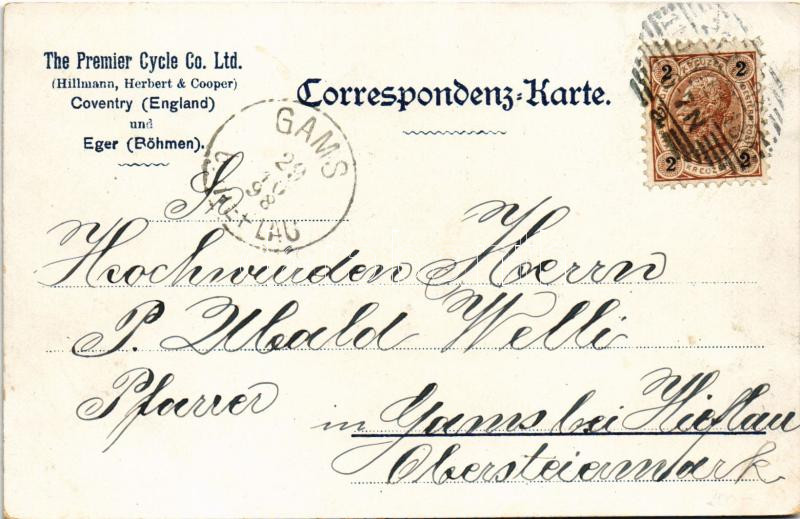 The Premier Cycle Co. Ltd.
(Hillmann, Herbert & Cooper)
Coventry (England)
und
Eger (Böhmen).
Correspondenz-Karte.
GAMS
29
10
98
LAU
2 2
2 2
Sr
Hochwürden Herrn
P. Ubald Welli
Pfarrer
in Gams bei Hieflau
Obersteiermark